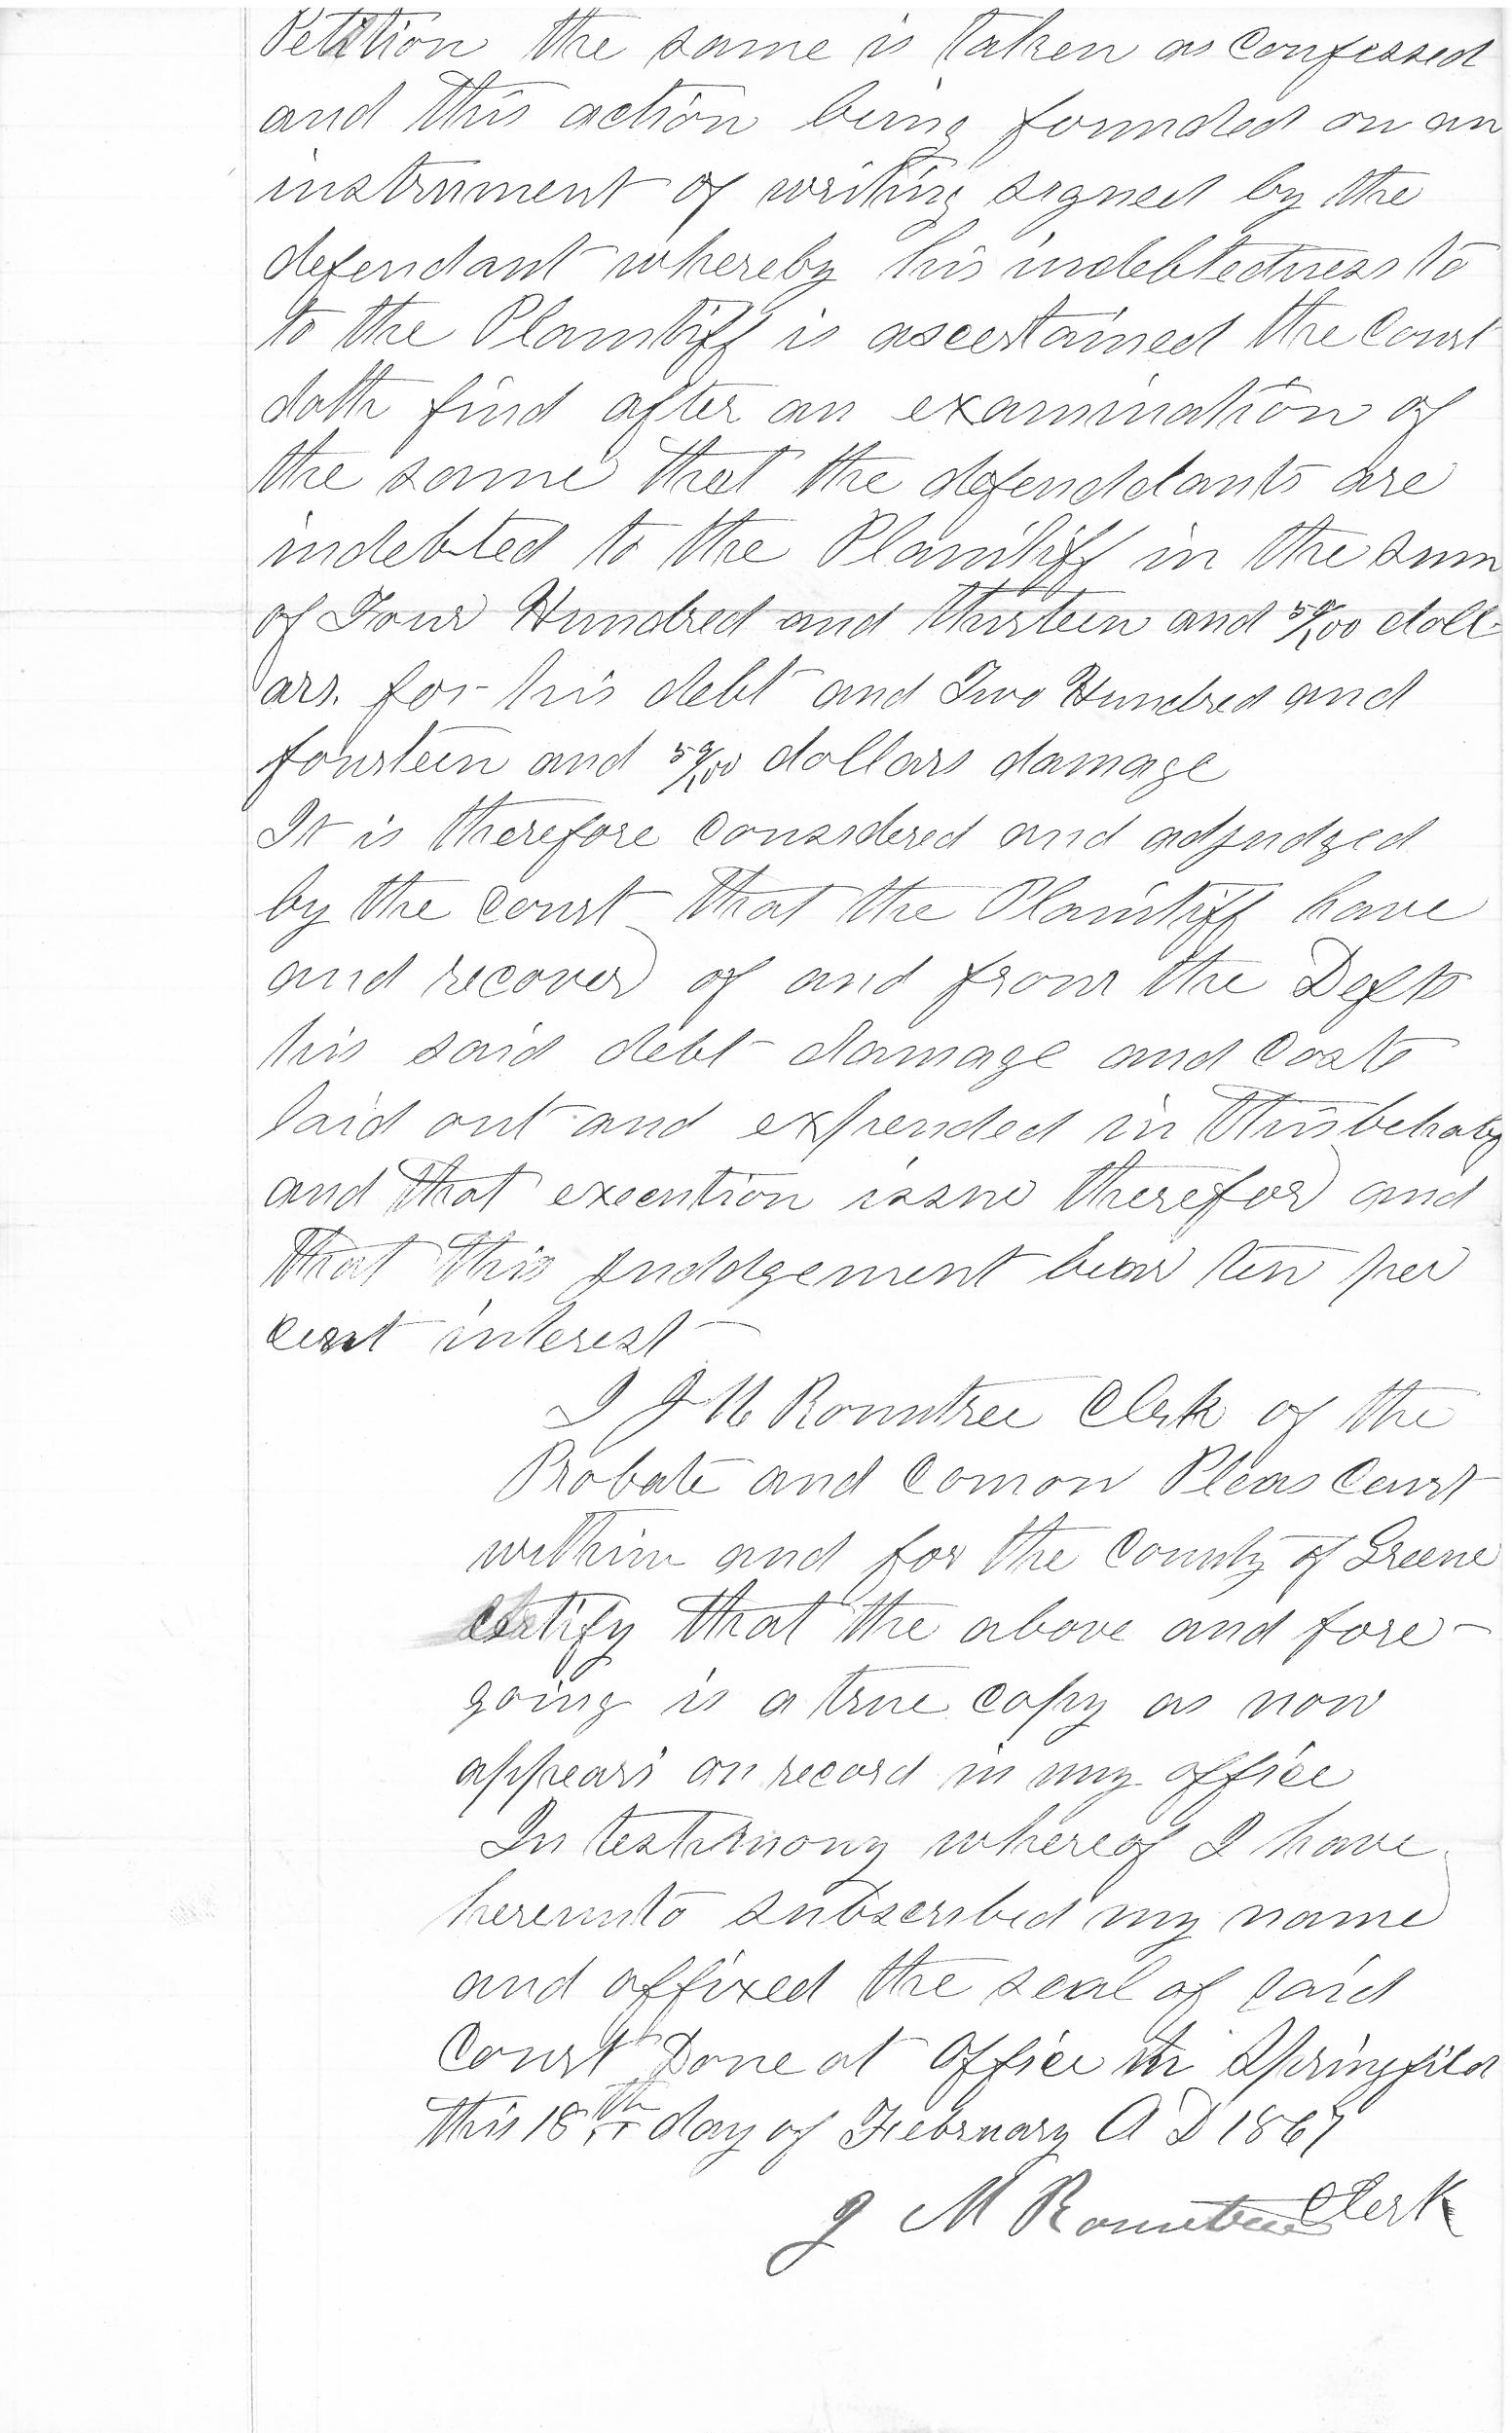 Petition the same is taken as Confessed
and this action being founded on an
instrument of writing signed by the
defendant whereby his indebtedness to
to the Plaintiff is ascertained the Court
doth find after an examination of
the same that the defenddants are
indebted to the Plaintiff in the sum
of Four Hundred and thirteen and 50/100 doll-
ars. for his debt and Two Hundred and
fourteen and 59/100 dollars damage
It is therefore Considered and adjudged
by the Court that the Plaintiff have
and recover of and from the Defts
his said debt damage and Costs
laid out and expended in this behalf
and that execution issue therefor and
that this juddgement bear ten per
Cent interest
I J M Rountree Clerk of the
Probate and Comon Pleas Court
within and for the County of Greene
Certify that the above and fore-
going is a true Copy as now
appears on record in my office
In testimony whereof I have
hereunto subscribed my name
and affixed the seal of said
Court Done at Office in Springfield
this 18th day of February A D 1867
J M Rountree Clerk